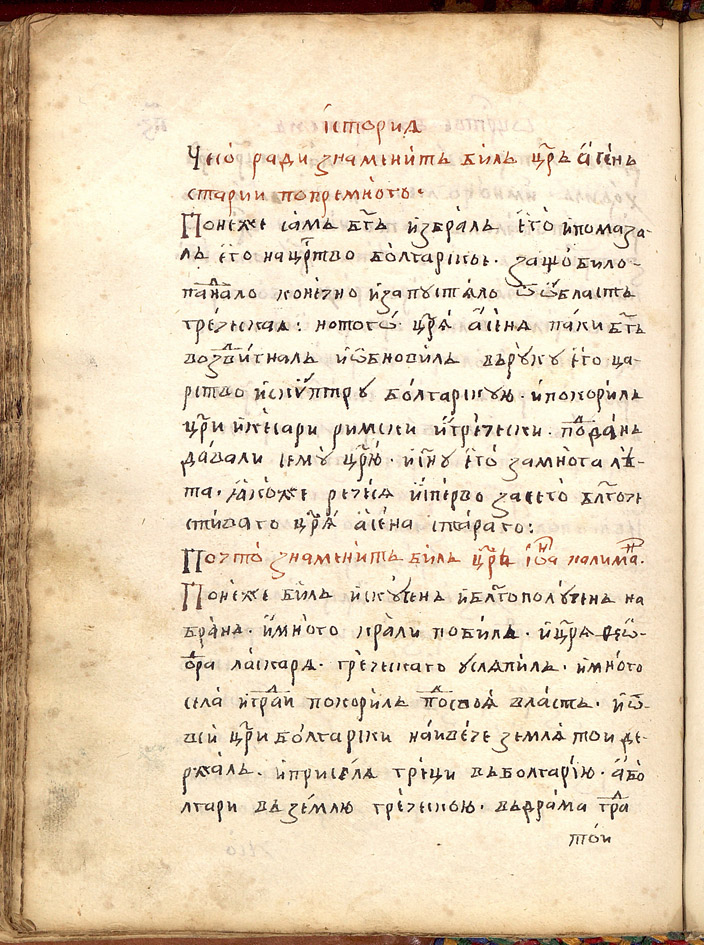 і҆сторїѧ
Чесо̀ ради знамени́тъ би́лъ цр҃ъ а҆се́нь
старии попремногъ·
Поне́же самъ бг҃ъ и҆збра́лъ є҆го̀ и҆помаза-
лъ є҆го̀ на цр҃тво бо́лгарское· защо̀ било-
пад́нало конечно и҆запустѣло ѿ ѡ҆бласть
греческаѧ: нотогѡ̀· цр҃ѧ а҆се́нѧ паки бг҃ъ
воздви́гналъ и҆ѡ҆бнови́лъ въруку є҆го̀ ца-
рство и҆ски́птру бо́лгарскую· и҆покори́лъ
цр҃и и҆ке́сари римски и҆гре́чески· пода́нь
дава́ли семꙋ̀ цр҃ю̀· и҆сн҃у є҆го̀ замнога лѣ-
та· ꙗ҆́коже рече́сѧ и҆пе́рво засего̀ блг҃оче
стиваго цр҃ѧ̀ а҆се́на ста́раго:
Почто̀ знамени́тъ би́лъ цр҃ь і҆ѡ҃а калима҃·
Поне́же би́лъ и҆ску́сенъ и҆блг҃ополу́ченъ на
бра́нъ· и҆мно́го кра́ли поби́лъ· и҆ цр҃ѧ ѳеѡ̀-
д́ора ла́скарѧ· гре́ческаго услѣпи́лъ· и҆мно́го
села̀ и҆гра́ди покори́лъ подсвоѧ̀ вла́сть· и҆ѿ
всѝ цр҃и бо́лгарски на́ивече землѧ̀ тои де-
ржа́лъ· и҆пресе́лѧ гре́ци въболга́рїю· а҆бо̀
лгари въ зе́млю гре́ческою· въдра́ма гра́д
то́и